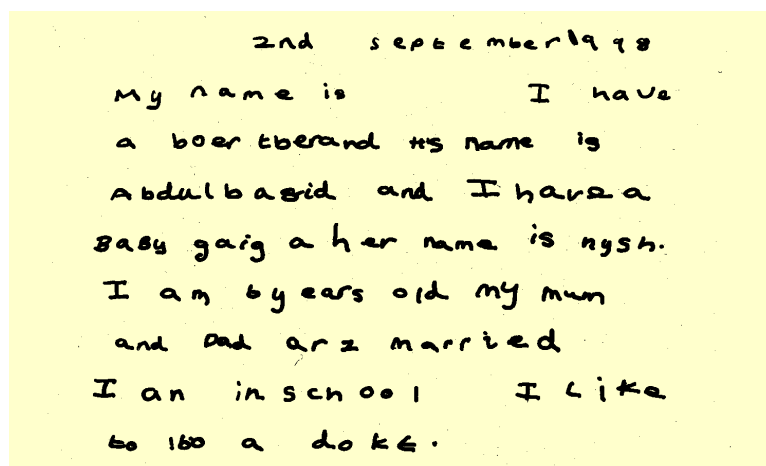 2nd september 1998
My name is I have
a boer tberand His name is
Abdulbasid and I have a
BaBy gaig a her name is nysh.
I am 6 years old My mum
and Dad are married
I an in school I Like
to 1bo a doke.